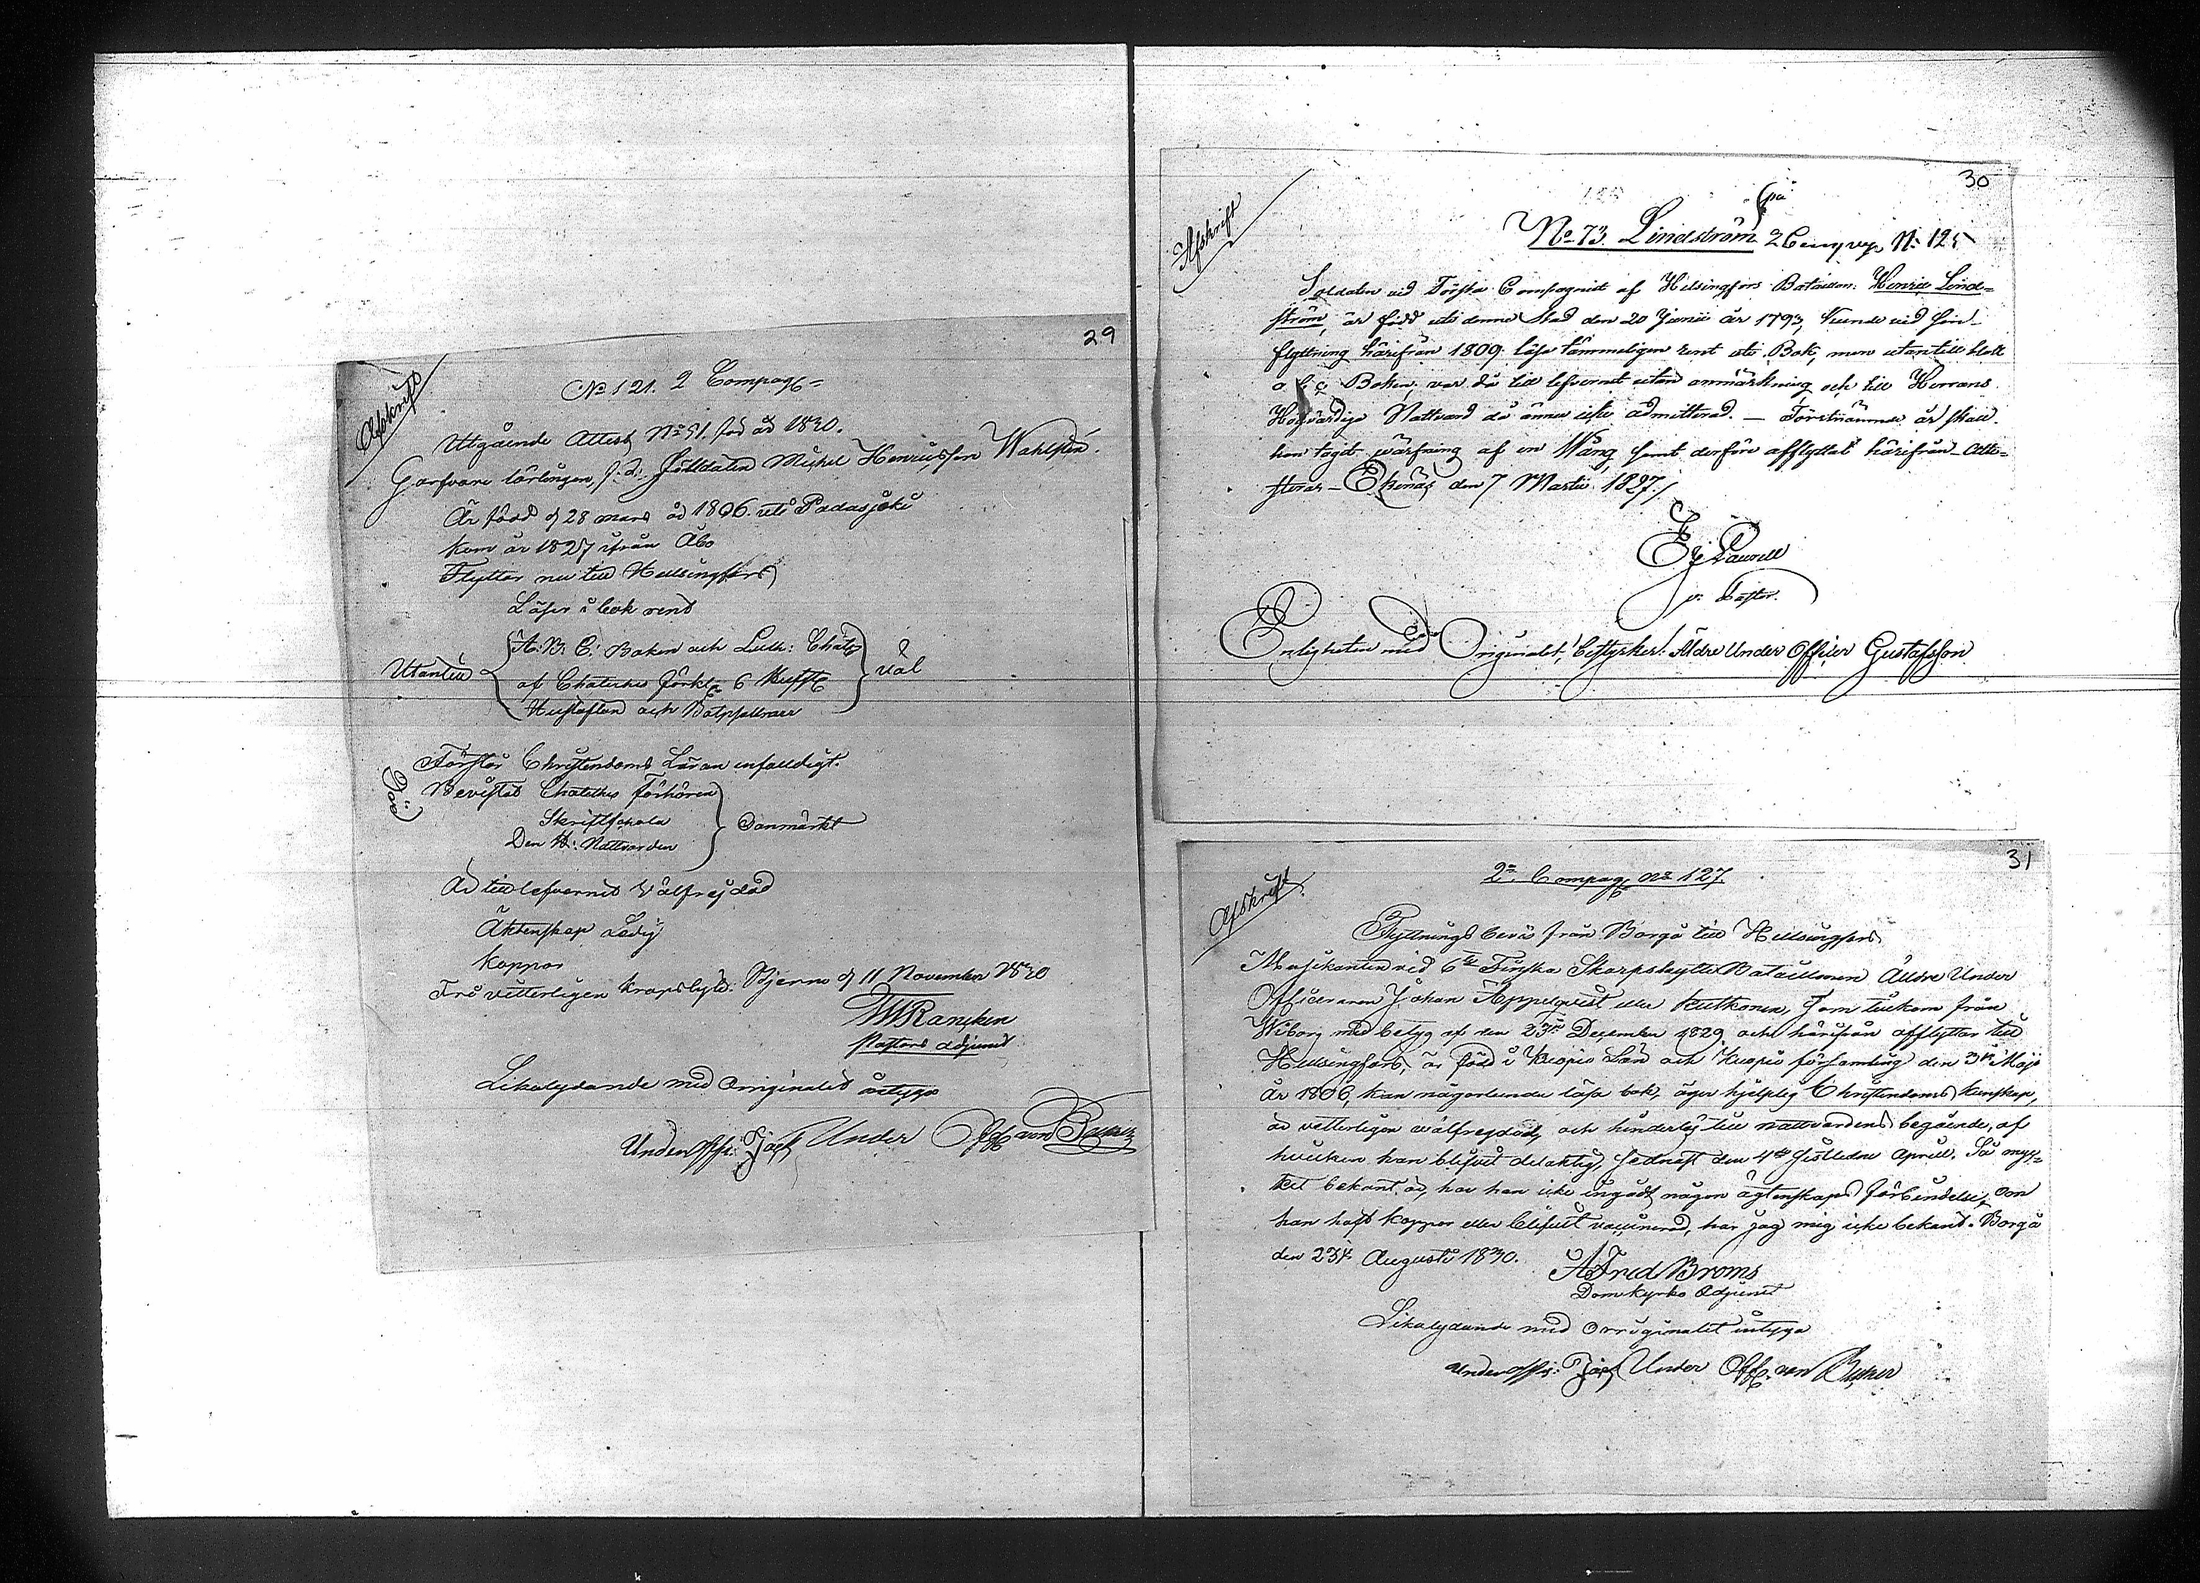 29
Afskrift
No 121. 2 Compag
Utgående Attest No 51. för år 1830.
Garfvare lärlingen, Solldaten Michel Henricsson Wahlsten.
Är född d 28 mars år 1806 uti Padasjoki
kom år 1827 ifrån Åbo
Flyttar nu till Hellsingfors
Läser i bok rent
Utantill
A: B: C: Boken och Luth: Chats
af Chateches förkl 6
Hustaflan och Botpsallmarr
väl
Förstår Christendoms Läran enfalldigt.
Död
Bevistat Chateches förhören
Skriftskola
Den H: Nattvarden
oanmärkt
Är till lefvernet välfrejdad
Äktenskap Ledig
Koppor
Frö vitterligen kropslyte. Bjerno d 11 November 1830
Rancken
Pastors adjunct
Likalydande med Originalet intyga
Under Off: Under Off von
30
Afskrift
på
No 73. Lindström 2 Comp No 125
Soldaten vid Första Compagniet af Helsingfors Bataillon: Henric Lind=
ström, är född uti denna Stad den 20 Junii år 1793, kunde vid sin
flyttning härifrån 1809 läsa tämmeligen rent uti Bok, men utantill blott
a b c Boken, var då till lefvernet utan anmärkning och till Herrans
Högvärdiga Nattvard då ännu icke admitterad. — Förstnämnde år skall
han tagit värfning af en Wäng, samt derföre afflyttat härifrån – Atte=
steras – Ekenäs den 7 Martii 1827./
v: Pastor.
Enligheten med Originalet, bestyrker: Äldre Under Officer Gustafsson
31
Afskrift
2a Compag no 127
Flyttnings bevis från Borgå till Hellsingfors
Musikanten vid 6te Finska Skarpskytte Bataillonen Äldre Under
Officeraren Johan Äppelqvist eller Kutkonen, som tillkom från
Wiborg med betyg af den 23 December 1829 och härifrån afflyttar till
Hellsingfors, är född i Kuopio Län och Kuopio församling den 3 Maji
år 1806, kan någorlunda läsa bok, äger hjelplig Christendoms kunskap,
är vetterligen välfrejdad, och hinderlös till nattvardens begående, af
hvilken han blifvit delaktig, sednast den 4de sistledne April. Så myc=
ket bekant är, har han icke ingådt någon ägtenskaps förbindelse, om
han haft koppor eller blifvit vaccinerad, har jag mig icke bekant. Borgå
den 23 Augusti 1830.
A Fred Broms
Domkyrko Adjunct
Likalydande med Orriginalet intyga
Under Off: Under Off. von